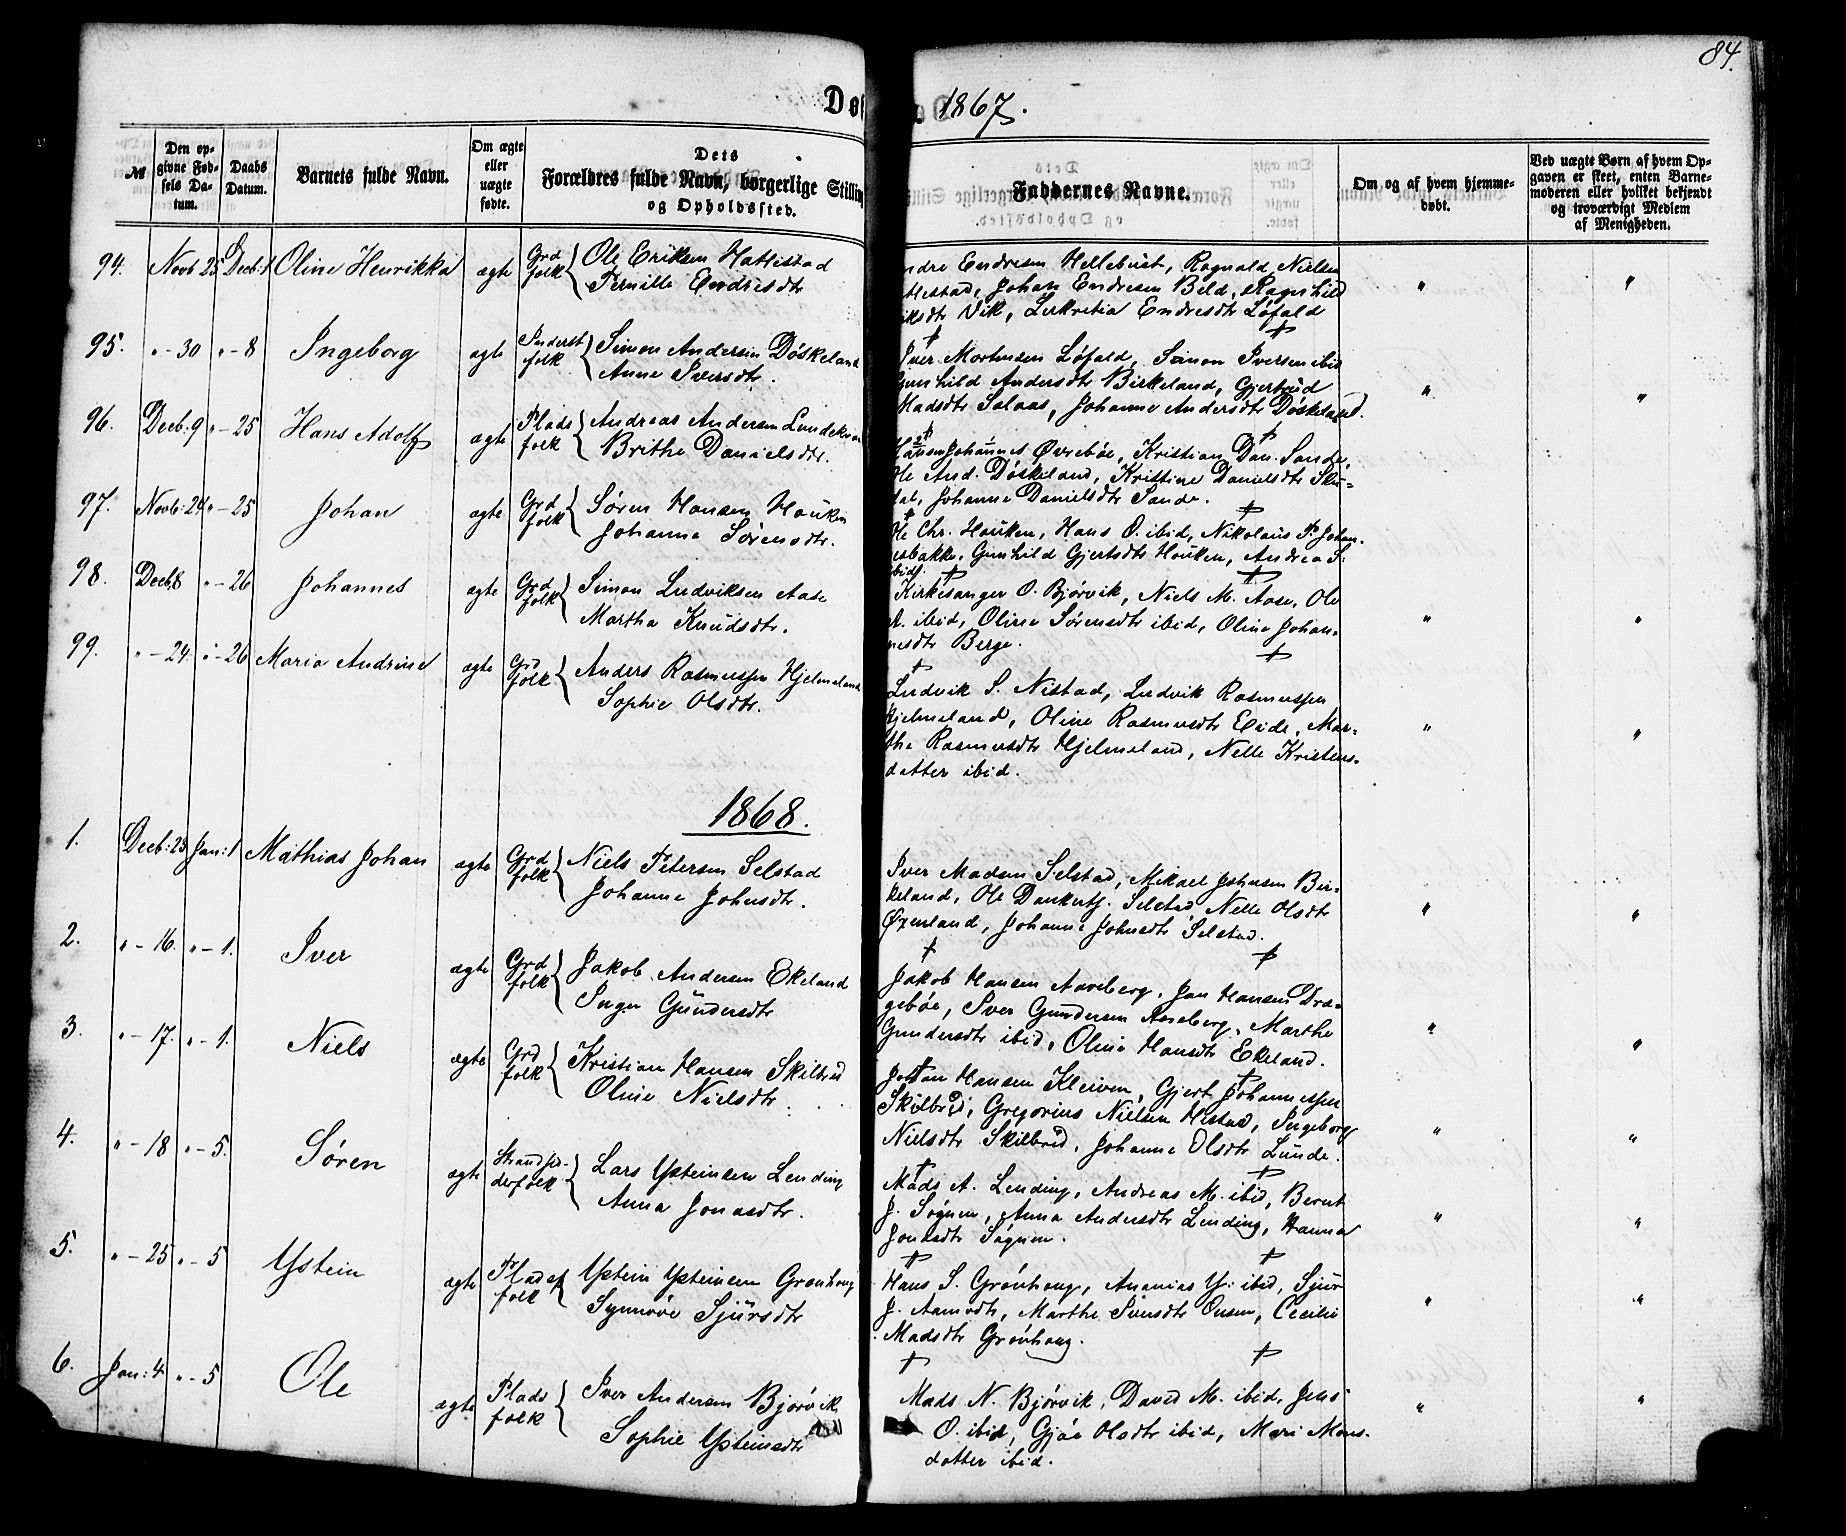 84.
Døb
1867.
№
Den op-
givne Fød-
sels Da-
tum.
Daabs
Datum.
Barnets fulde Navn.
Om ægte
eller
uægte
fødte.
Dets
Forældres fulde Navn, borgerlige Stilling
og Opholdssted.
Faddernes Navne.
Om og af hvem hjemme-
døbt.
Ved uægte Børn af hvem Op-
gaven er skeet, enten Barne-
moderen eller hvilket bekjendt
og troværdigt Medlem
af Menigheden.
94. Novb 25 Decb: 1 Oline Henrikka ægte Grd folk Ole Eriksen Hatlestad
Pernille Endresdtr
ndre Endresen Hellebust, Ragnald Nielsen
tlestad, Johan Endresen Bild, Ragnhild
iksdtr Vik, Lukretia Endresdtr Løfald
95. " - 30 " - 8 Ingeborg ægte Inderst folk Simon Andersen Døskeland
Anne Iversdtr.
Iver Mortensen Løfald, Simon Iversen ibid
Gunhild Andersdtr Birkeland, Gjertrud
Madsdtr Salaas, Johanne Andersdtr Døskeland.
96. Decb: 9 " - 25 Hans Adolf ægte Plads folk Andreas Andersen
Brithe Danielsdtr.
Johannes Øvrebøe, Kristian Dan. Sande,
Ole And. Døskeland, Kristine Danielsdtr
dal, Johanne Danielsdtr Sande.
97. Novb: 24 " - 25 Johan ægte Grd folk Søren Hansen Houken
Johanne Sørensdtr.
Ole Chr. Houken, Hans O. ibid, Nikolaus P. Johan-
esbakke, Gunhild Gjertsdtr Houken, Andrea S.
ibid.
98. Decb: 8 " - 26 Johannes ægte Grd folk Simon Ludviksen Aase
Martha Knudsdtr.
Kirkesanger O. Bjørvik, Niels M. Aase, Ole
A. ibid, Oline Sørensdtr ibid, Oline Johan-
nesdtr Berge.
99. " - 24. " - 26 Maria Andrine ægte Grd folk Anders Rasmussen Hjelmeland
Sophie Olsdtr.
Ludvik S. Nistad, Ludvik Rasmussen
Hjelmeland, Oline Rasmusdtr Eide, Mar-
the Rasmusdtr Hjelmeland, Nelle Kristens-
datter ibid.
1868.
1. Decb: 23 Jan: 1 Mathias Johan ægte Grd folk Niels Petersen Selstad
Johanne Johnsdtr.
Iver Madsen Selstad, Mikael Johnsen Bir-
keland, Ole Dankerts. Selstad Nelle Olsdtr
Øxenland, Johanne Johnsdtr Selstad.
2. " - 16. " - 1. Iver ægte Grd folk Jakob Andersen Ekeland
Inger Gundersdtr
Jakob Hansen Aareberg, Jan Hansen Dra-
gebøe, Iver Gundersen Aareberg, Marthe
Gundersdtr ibid, Oline Hansdtr Ekeland.
3. " - 17. " - 1. Niels ægte Grd folk Kristian Hansen Skilbrid
Oline Nielsdtr.
Johan Hansen Kleiven, Gjert Johannessen
Skilbrid, Gregorius Nielsen Hestad, Ingeborg
Nielsdtr Skilbrid, Johanne Olsdtr Lunde.
4. " - 18 " - 5. Søren ægte Strandsid-
derfolk Lars Ysteinsen Lending
Anna Jonasdtr.
Mads A. Lending, Andreas M. ibid, Bernt
J. Søgnen, Anna Andersdtr Lending, Hanna
Jonasdtr Søgnen.
5. " - 25 " - 5 Ystein ægte Plads folk Ystein Ysteinsen Grønhaug
Synnøve Sjursdtr
Hans S. Grønhaug, Ananias Y. ibid, Sjur
J. Aamodt, Marthe Iversdtr Onsen, Cecilie
Madsdtr Grønhaug.
6. Jan: 4. " - 5 Ole ægte Plads folk Iver Andersen Bjørvik
Sophie Ysteinsdtr
Mads N. Bjørvik, David M. ibid, Jens
O. ibid, Gjøe Olsdtr ibid, Mari Mons-
datter ibid.